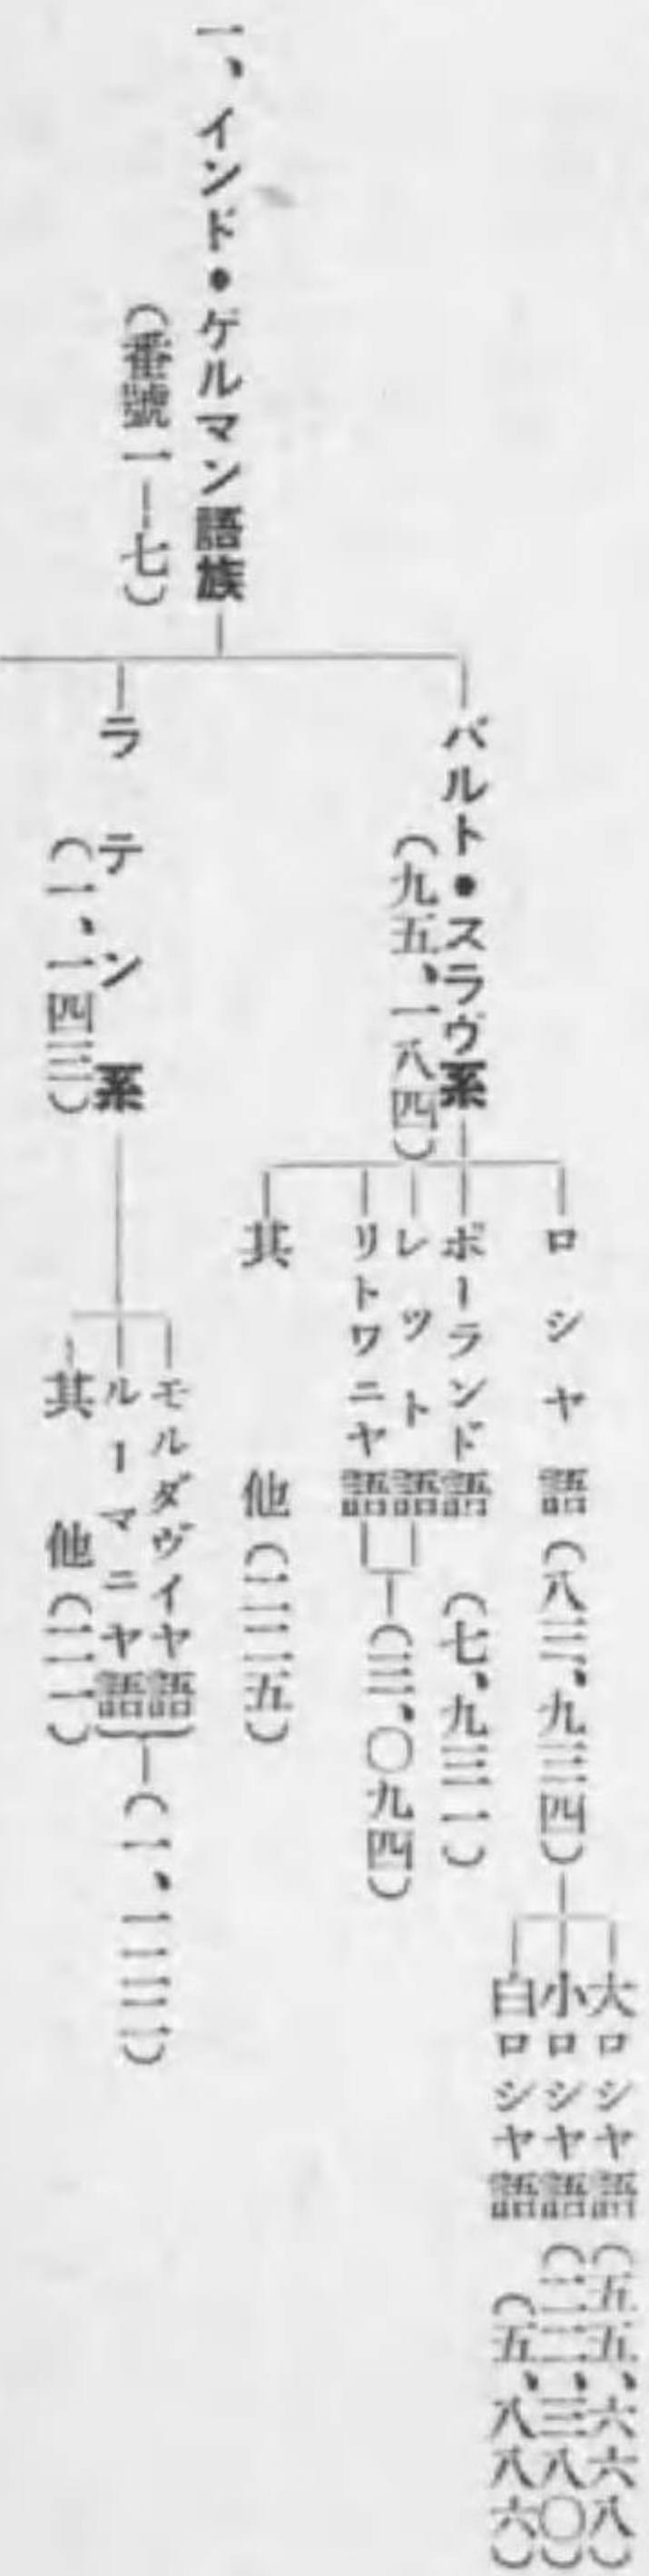 一、インド・ゲルマン語族
(番號一―七)
バルト・スラヴ系
(九五、一八四)
ロシヤ語(八三、九三四)
大ロシヤ語(五五、六六八)
小ロシヤ語(二二、三八〇)
白ロシヤ語(五、八八六)
ポーランド語(七、九三一)
レット語
リトワニヤ語
(三、〇九四)
其他(二二五)
ラテン系
(一、一四三)
モルダヴイヤ語
ルーマニヤ語
(一、一二二)
其他(二一)